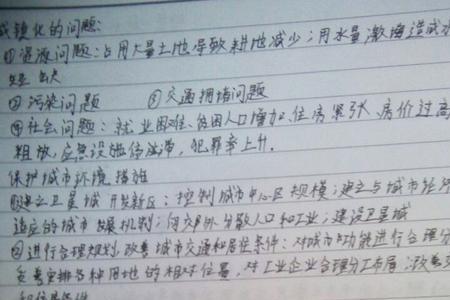 城镇化的问题:
①资源问题:占用大量土地导致耕地减少;用水量激增造成水
短缺
②污染问题 ③交通拥堵问题
④社会问题:就业困难、贫困人口增加、住房紧张、房价过高
粗放,应急设施待法滞,犯罪率上升。
保护城市环境措施
①建立卫星城 开发新区:控制城市中心区规模;建立与城市经济
适应的城市发展机制;向郊外分散人口和工业;建设卫星城
②进行合理规划,改善城市交通和居住条件:对城市功能进行合理分
妥善安排各种用地的相对位置,对工业企业合理分工布局;改善交
和住条件